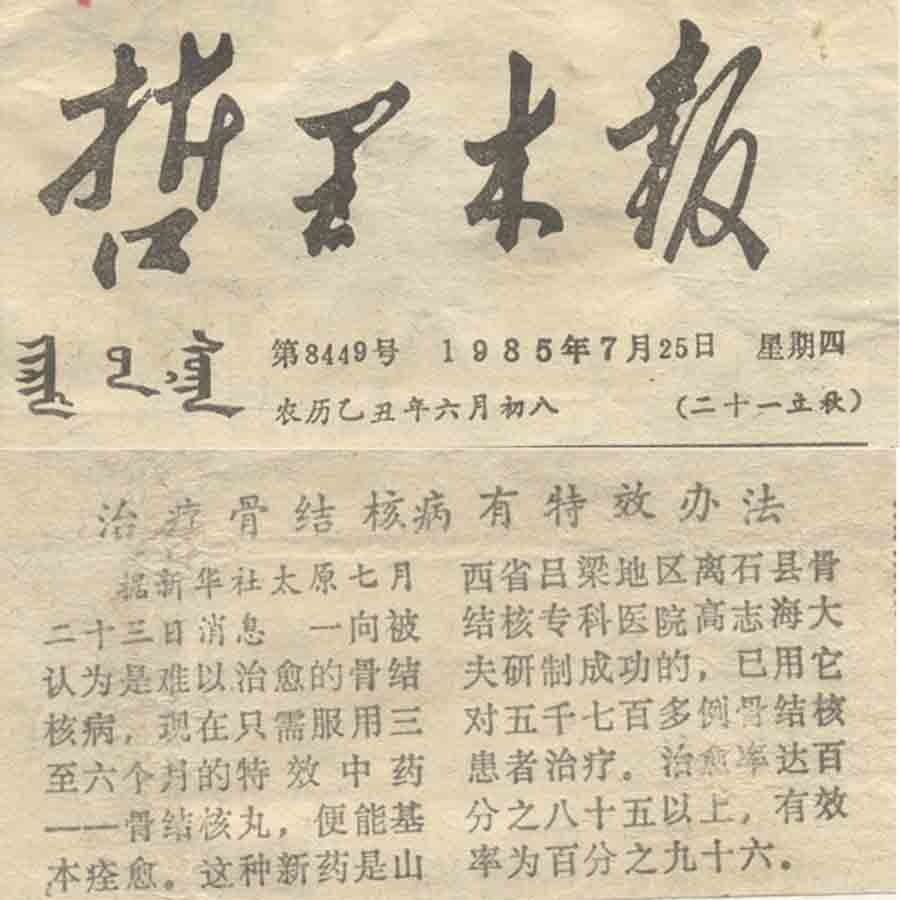 哲里木报
第8449号 1985年7月25日 星期四
农历乙丑年六月初八 (二十一立秋)
治疗骨结核病有特效办法
据新华社太原七月
二十三日消息 一向被
认为是难以治愈的骨结
核病，现在只需服用三
至六个月的特效中药
——骨结核丸，便能基
本痊愈。这种新药是山
西省吕梁地区离石县骨
结核专科医院高志海大
夫研制成功的，已用它
对五千七百多例骨结核
患者治疗。治愈率达百
分之八十五以上，有效
率为百分之九十六。